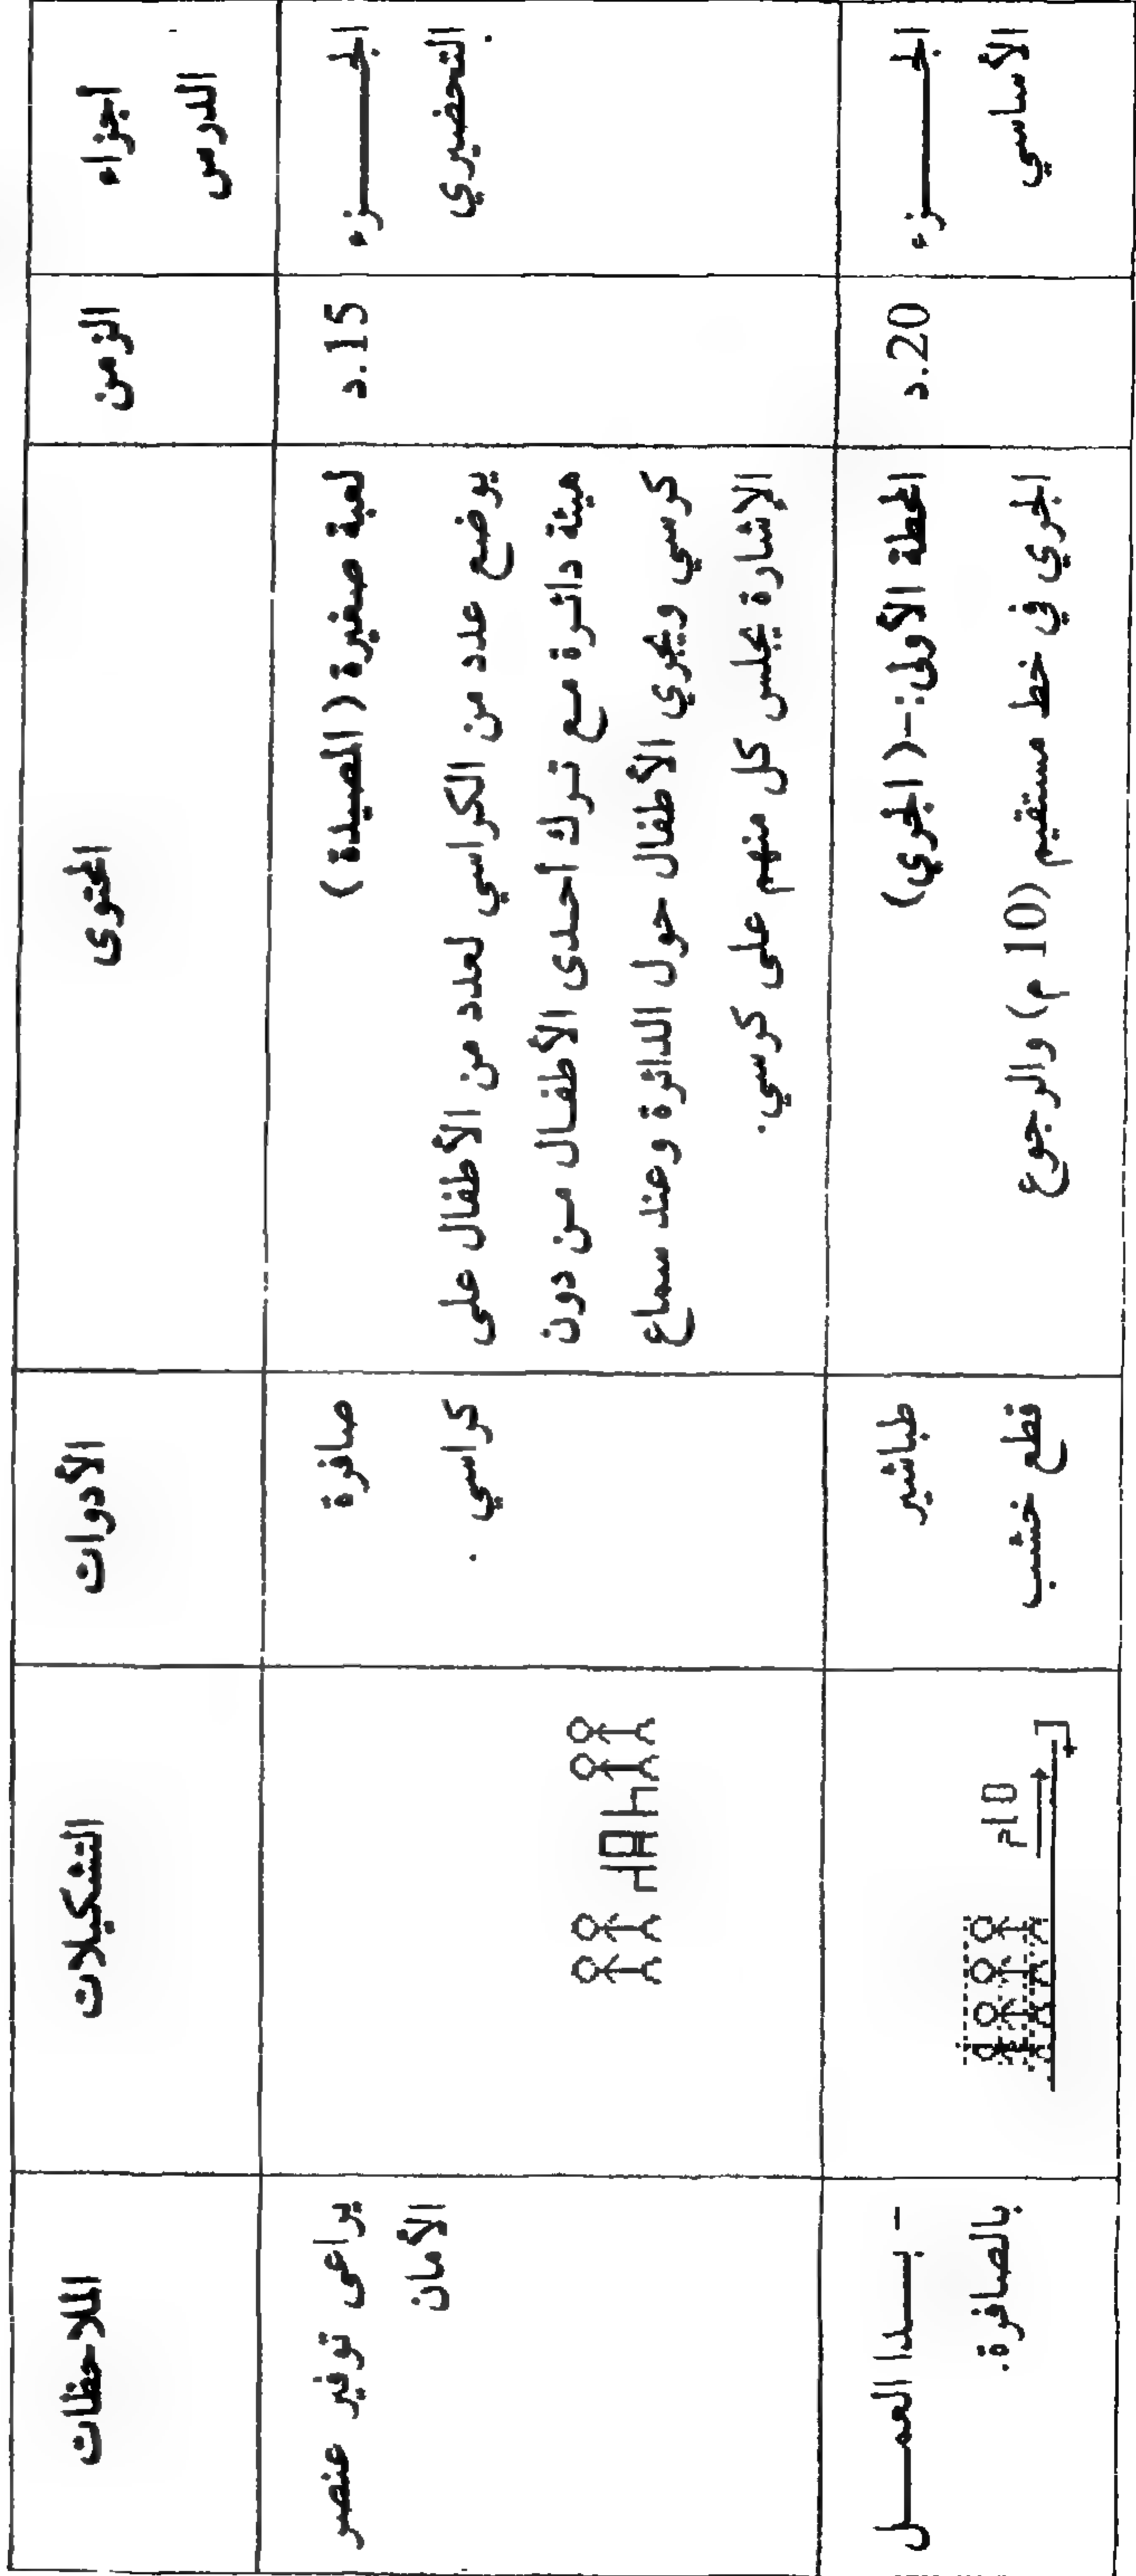 اجزاء
الدرس
الزمن
المحتوى
الأدوات
التشكيلات
الملاحظات
الجـــــزء
التحضيري.
15.د
لعبة صغيرة (المصيدة)
يوضع عدد من الكراسي لعدد من الأطفال على
هيئة دائرة مع ترك أحدى الأطفال من دون
كرسي ويجري الأطفال حول الدائرة وعند سماع
الإشارة يجلس كل منهم على كرسي.
صافرة
كراسي .
يراعى توفير عنصر
الأمان
الجـــــزء
الأساسي
20.د
المحطة الأولى:-(الجري)
الجري في خط مستقيم (10 م) والرجوع
طباشير
قطع خشب
10م
- بـــدا العمـــل
بالصافرة.